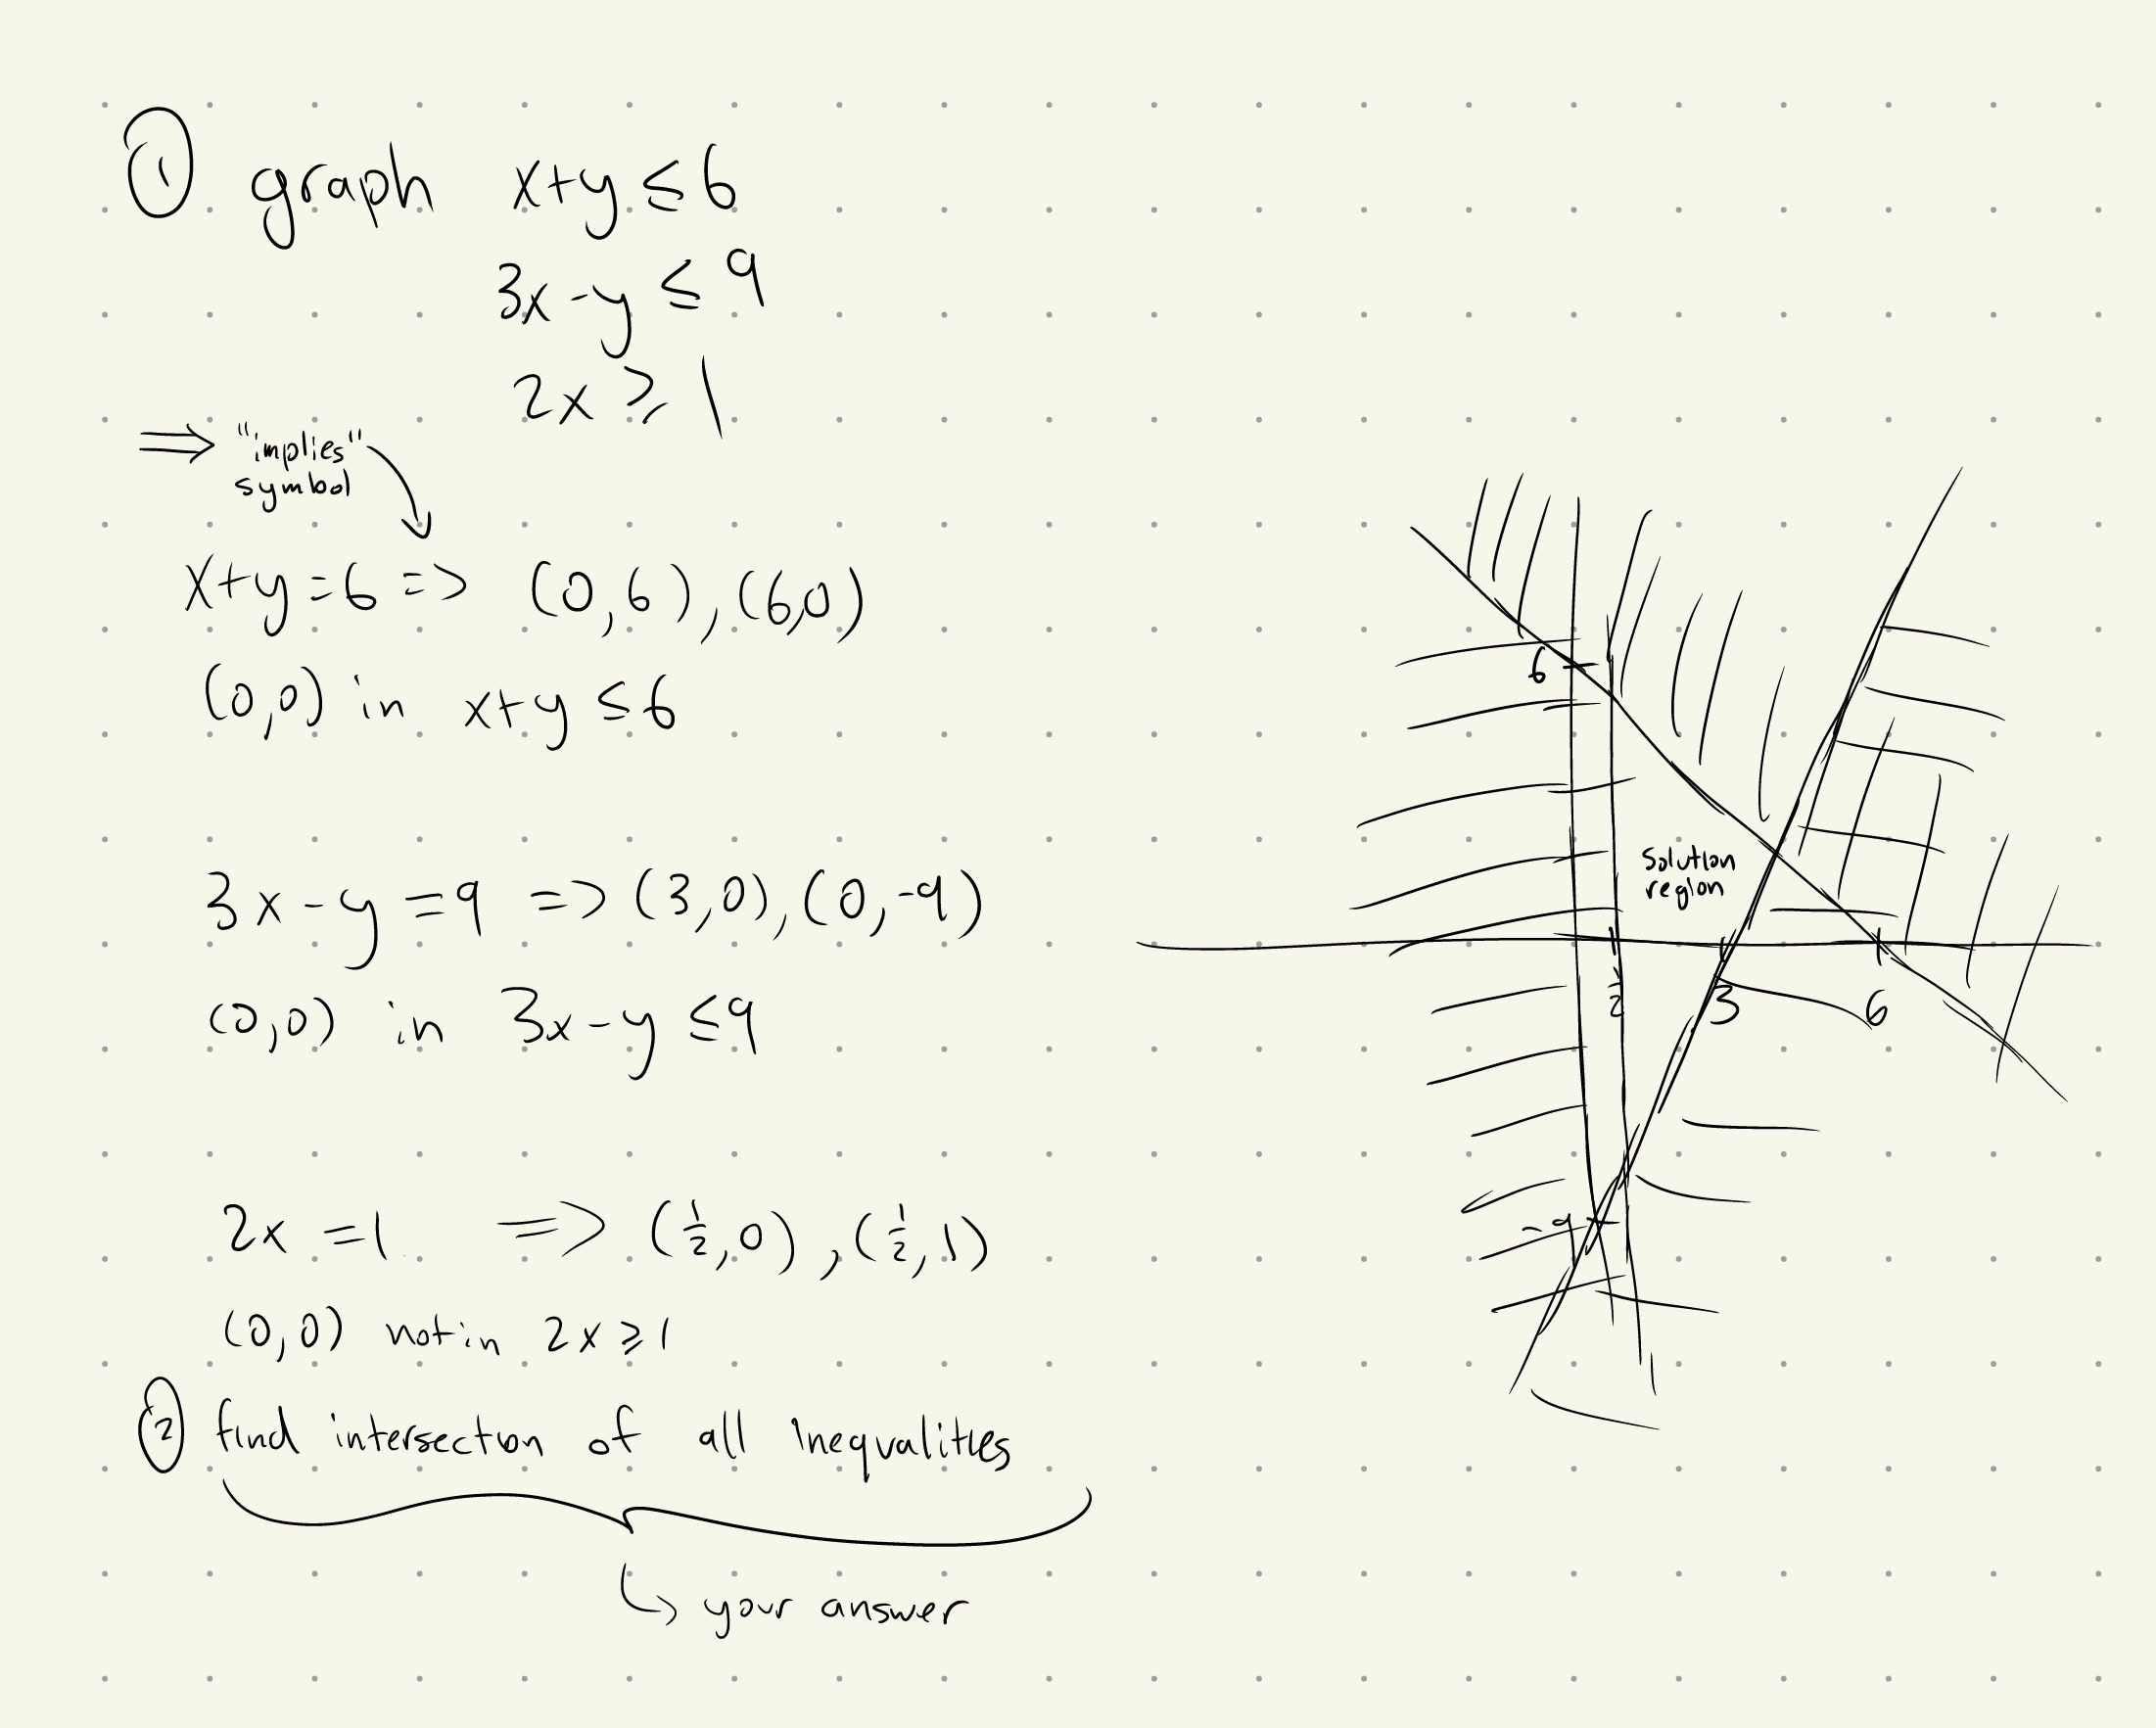 ① graph x+y ≤ 6
3x - y ≤ 9
2x ≥ 1
⇒ "implies"
symbol
x+y = 6 => (0,6), (6,0)
(0,0) in x+y ≤ 6
3x - y = 9 => (3,0), (0,-9)
(0,0) in 3x - y ≤ 9
2x = 1 => (1/2, 0), (1/2, 1)
(0,0) not in 2x ≥ 1
② find intersection of all inequalities
↳ your answer
6
solution
region
1/2
3
6
-9